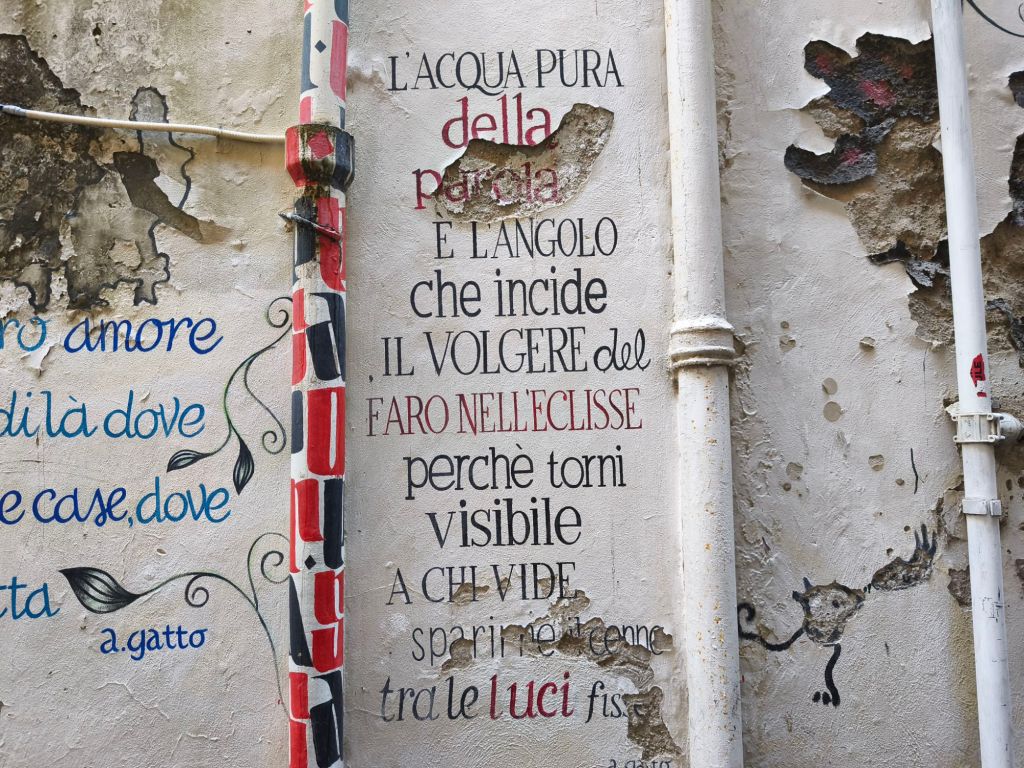 ro amore
di là dove
e case, dove
tta
a.gatto
L'ACQUA PURA
della
parola
È L'ANGOLO
che incide
IL VOLGERE del
FARO NELL'ECLISSE
perchè torni
visibile
A CHI VIDE
sparirne il cenno
tra le luci fisse
a.gatto